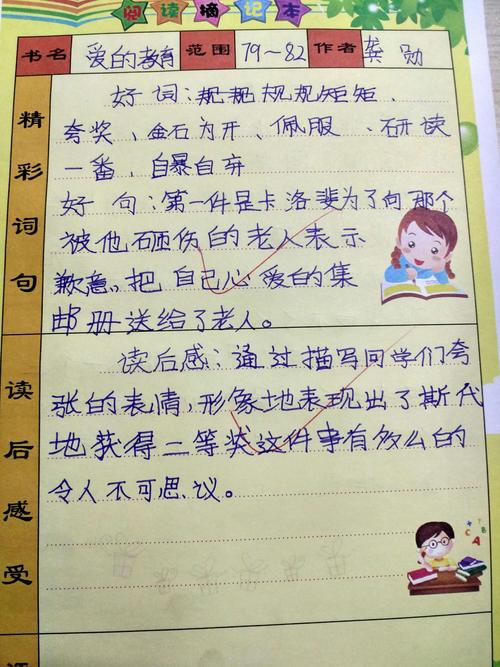 阅读摘记本
书名 爱的教育 范围 79~82 作者 龚勋
精彩词句
好词:规规规规矩矩、
夸奖、金石为开、佩服、研读
一番、自暴自弃
好句:第一件是卡洛斐为了向那个
被他砸伤的老人表示
歉意,把自己心爱的集
邮册送给了老人。
读后感受
读后感:通过描写同学们夸
张的表情,形象地表现出了斯代
地获得二等奖这件事有多么的
令人不可思议。